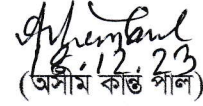 12.12.23
(অসীম কান্তি পাল)